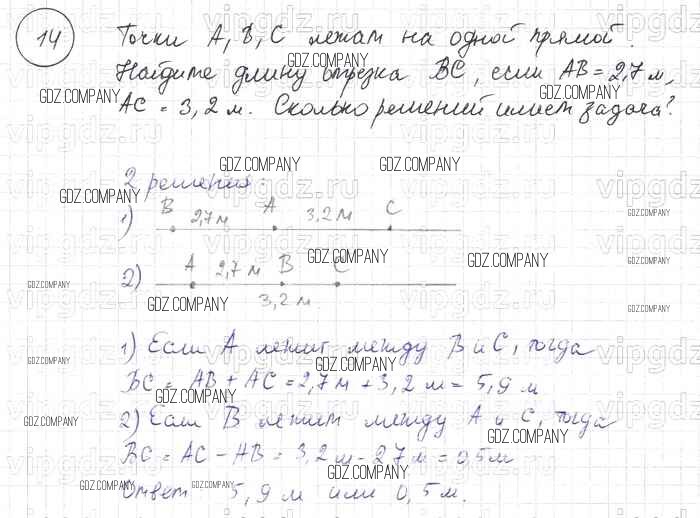 14 Точки A, B, C лежат на одной прямой.
Найдите длину отрезка BC, если AB = 2,7 м,
AC = 3,2 м. Сколько решений имеет задача?
2 решения:
1) B 2,7 м A 3,2 м C
2) A 2,7 м B C
3,2 м
1) Если A лежит между B и C, тогда
BC = AB + AC = 2,7 м + 3,2 м = 5,9 м
2) Если B лежит между A и C, тогда
BC = AC - AB = 3,2 м - 2,7 м = 0,5 м
Ответ: 5,9 м или 0,5 м.
GDZ.COMPANY
vipgdz.ru